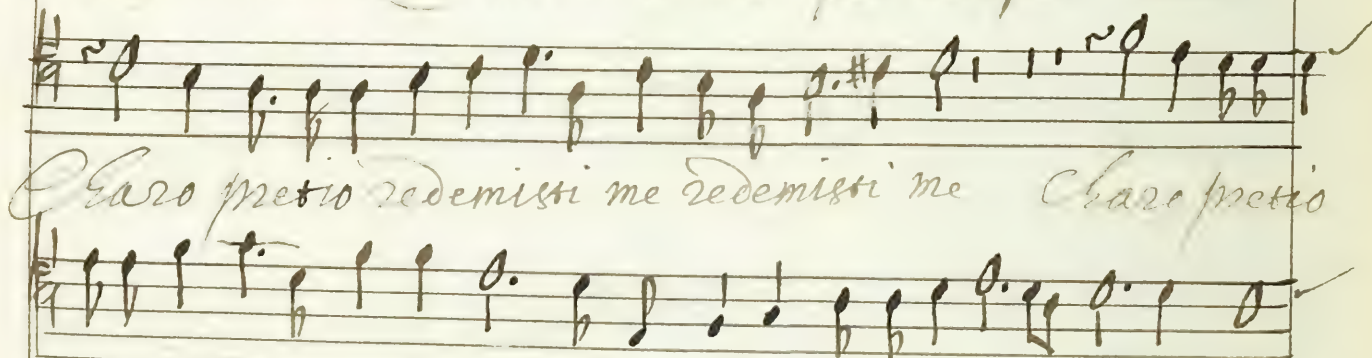 Charo pretio redemisti me redemisti me Charo pretio